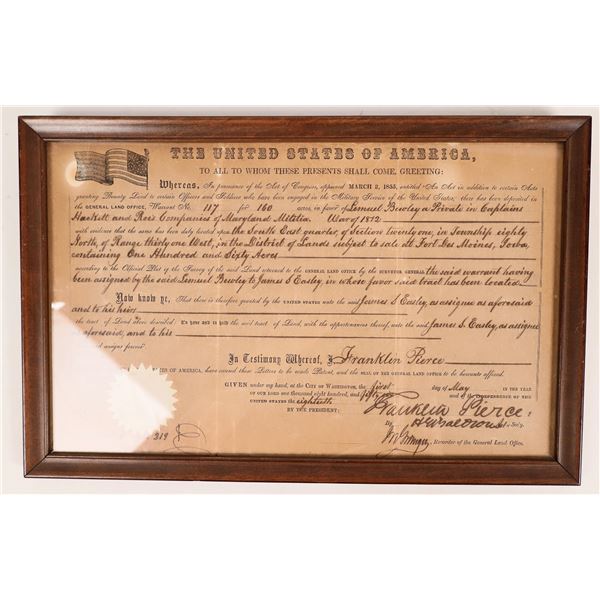 THE UNITED STATES OF AMERICA,
TO ALL TO WHOM THESE PRESENTS SHALL COME, GREETING:
Whereas, In pursuance of the Act of Congress, approved MARCH 3, 1855, entitled "An Act in addition to certain Acts
granting Bounty Land to certain Officers and Soldiers who have been engaged in the Military Service of the United States, there has been deposited in
the GENERAL LAND OFFICE, Warrant No. 117 for 160 acres, in favor of Lemuel Bewley a Private in Captains
Haskett and Rees Companies of Maryland Militia War of 1812
with evidence that the same has been duly located upon the South East quarter, of Section twenty one, in Township eighty
North, of Range thirty one West, in the District of Lands subject to sale at Fort Des Moines, Iowa,
containing One Hundred and Sixty Acres
according to the Official Plat of the Survey of the said Land returned to the GENERAL LAND OFFICE by the SURVEYOR GENERAL the said warrant having
been assigned by the said Lemuel Bewley to James S Easley, in whose favor said tract has been located
Now know ye, That there is therefore granted by the UNITED STATES unto the said James S Easley, as assignee as aforesaid
and to his heirs
the tract of Land above described: To have and to hold the said tract of Land, with the appurtenances thereof, unto the said James S. Easley, as assignee
as aforesaid, and to his
and assigns forever.
In Testimony Whereof, I, Franklin Pierce
OF AMERICA, have caused these Letters to be made Patent, and the SEAL of the GENERAL LAND OFFICE to be hereunto affixed.
GIVEN under my hand, at the CITY OF WASHINGTON, the first day of May IN THE YEAR
OF OUR LORD one thousand eight hundred, and fifty and of the INDEPENDENCE OF THE
UNITED STATES the eightieth
BY THE PRESIDENT: Franklin Pierce
By Sec'y.
Recorder of the General Land Office.
319